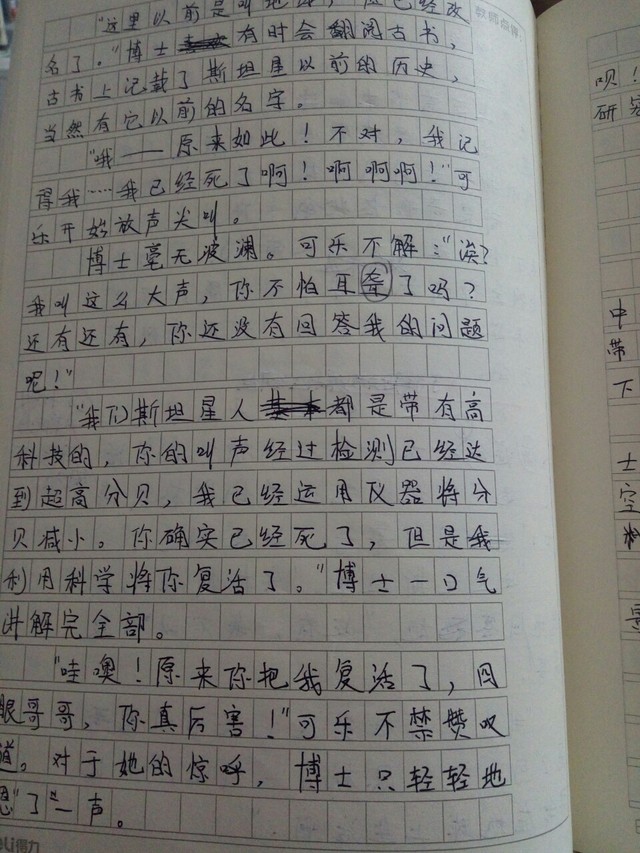 "这里以前是叫地球,应已经改
教师点评:
名了。"博士有时会翻阅古书,
古书上记载了斯坦星以前的历史,
当然有它以前的名字。
"哦——原来如此!不对,我记
得我……我已经死了啊!啊啊啊!"可
乐开始放声尖叫。
博士毫无波澜。可乐不解:"诶?
我叫这么大声,你不怕耳聋了吗?
还有还有,你还没有回答我的问题
呢!"
"我们斯坦星人都是带有高
科技的,你的叫声经过检测已经达
到超高分贝,我已经运用仪器将分
贝减小。你确实已经死了,但是我
利用科学将你复活了。"博士一口气
讲解完全部。
"哇噢!原来你把我复活了,四
眼哥哥,你真厉害!"可乐不禁赞叹
道。对于她的惊呼,博士只轻轻地
"恩"了一声。
得力
呗!
研究
中
带
下
士
空